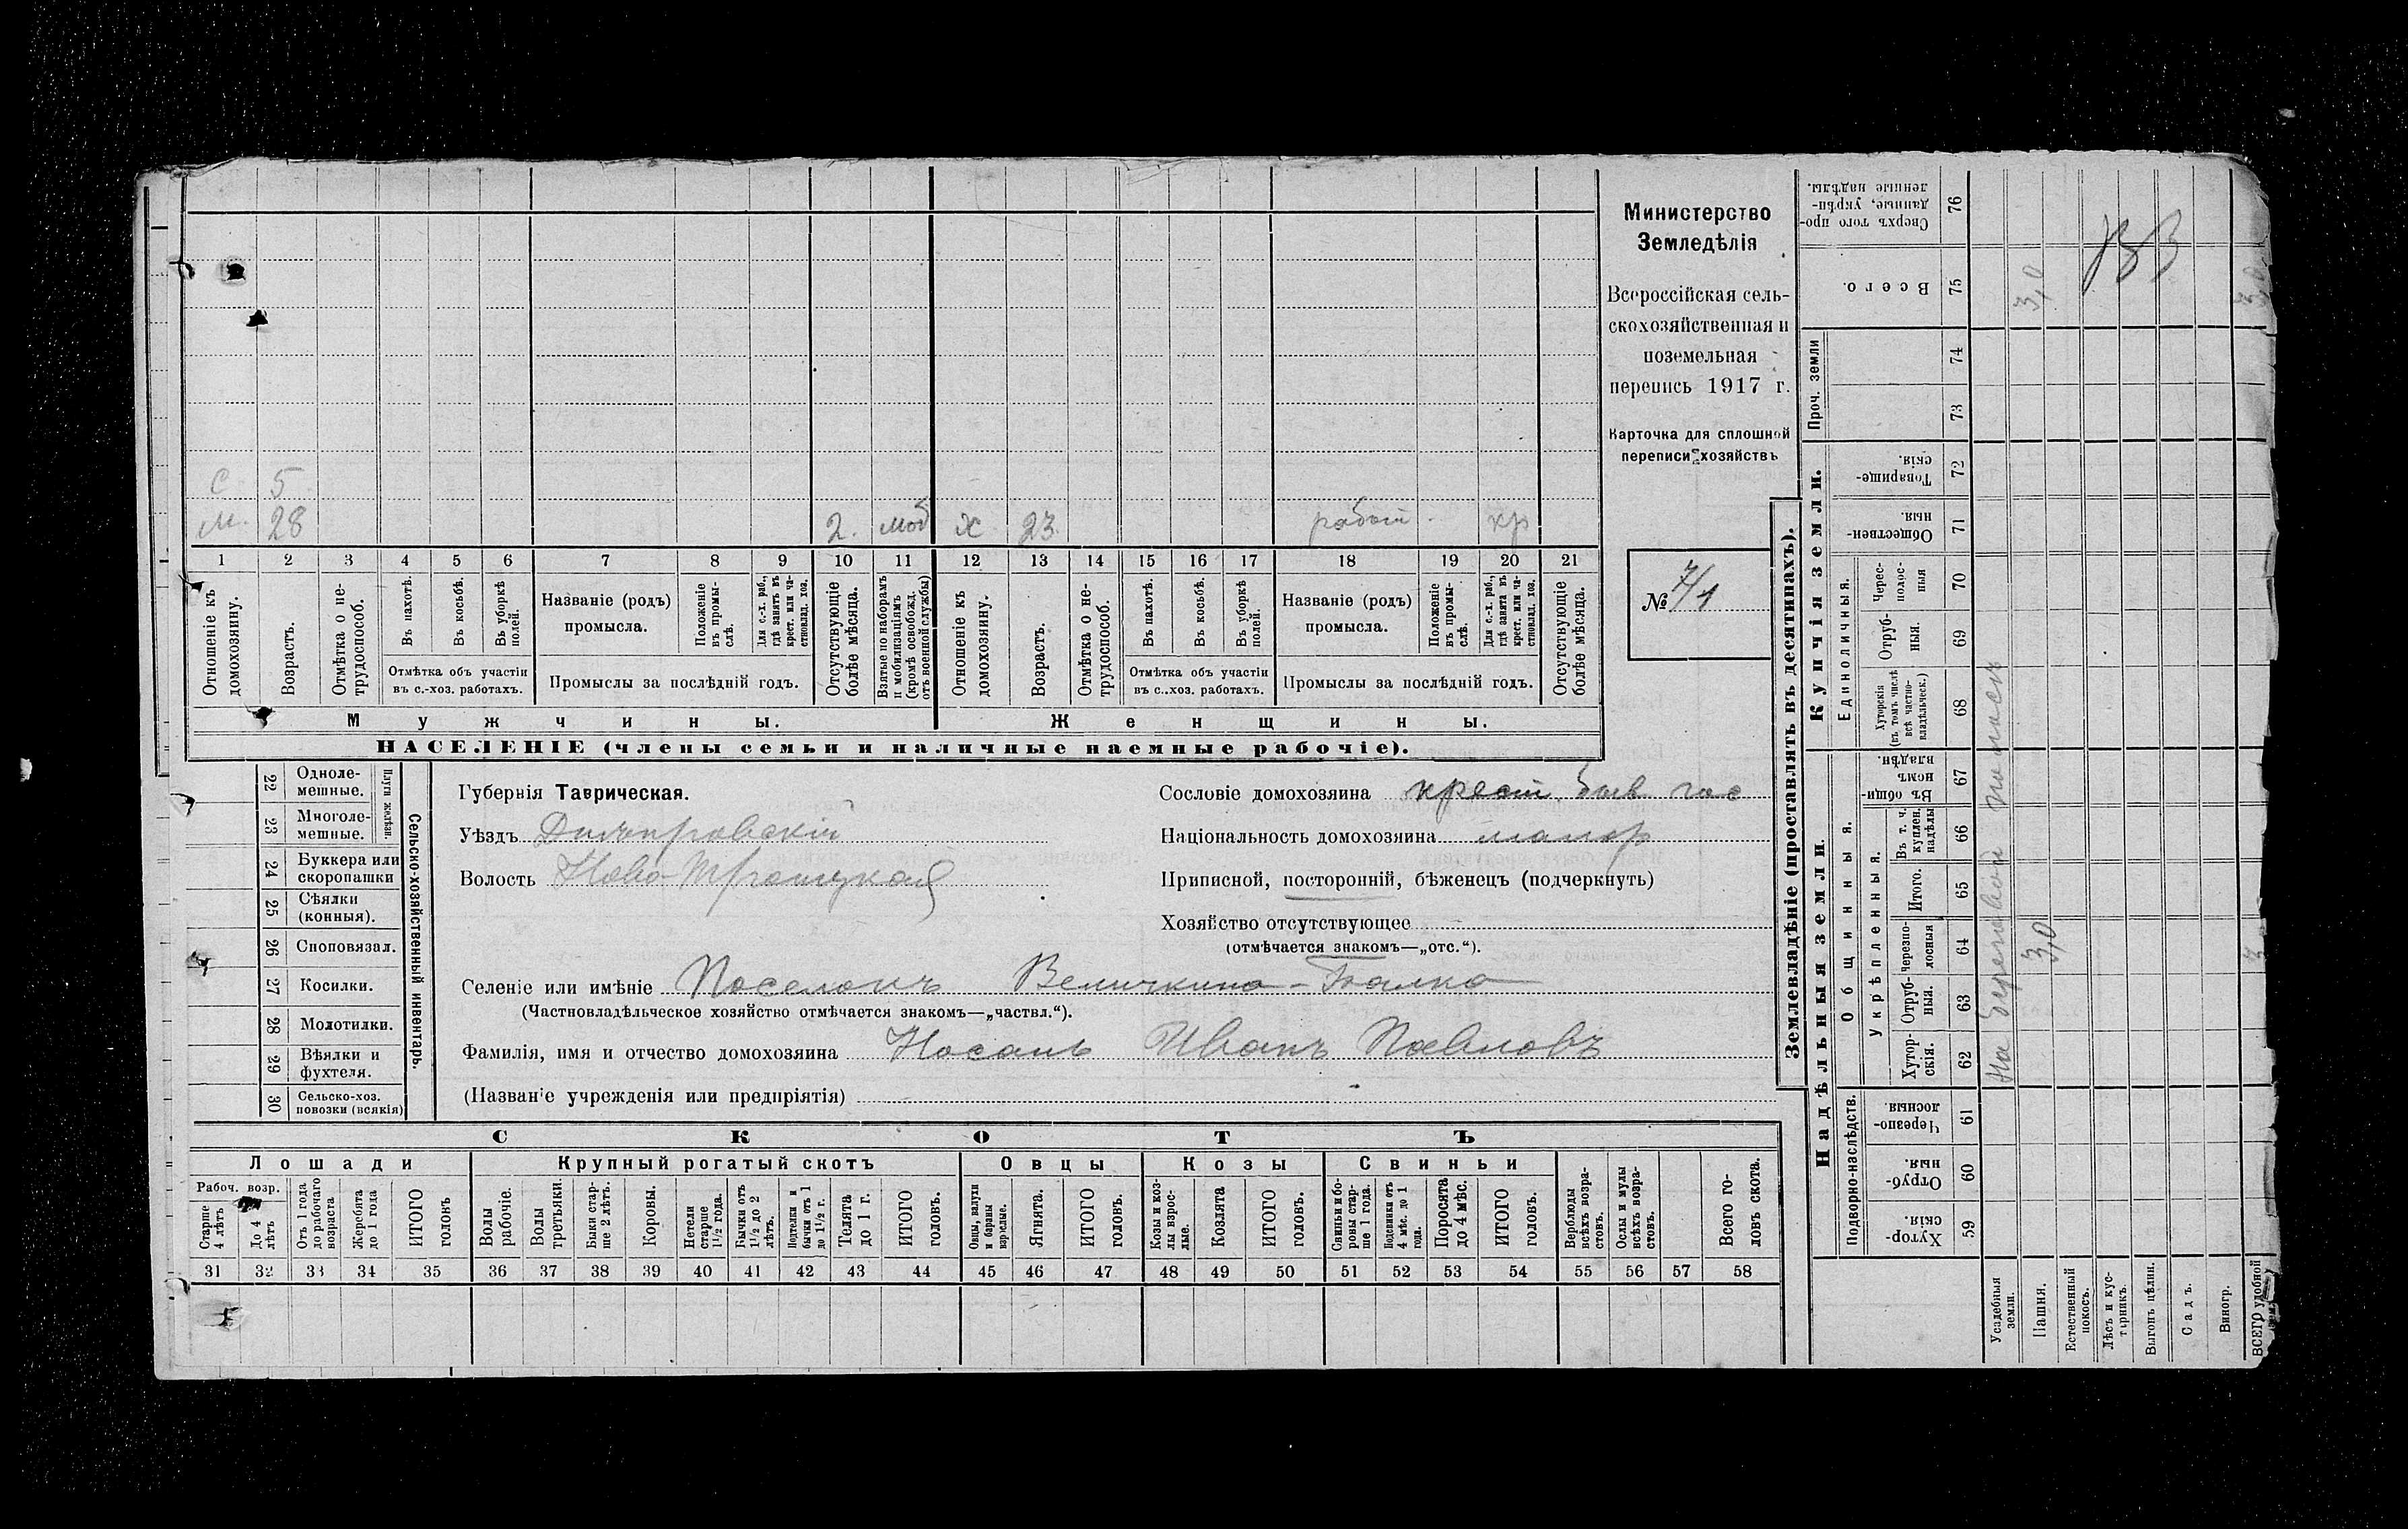 С. 5
М. 28 2. моб ж 23 работ. кр
1 2 3 4 5 6 7 8 9 10 11 12 13 14 15 16 17 18 19 20 21
Отношеніе къ домохозяину.
Возрастъ.
Отмѣтка о не-трудоспособ.
Въ пахотѣ.
Въ косьбѣ.
Въ уборкѣ полей.
Отмѣтка объ участіи
въ с.-хоз. работахъ.
Названіе (родъ)
промысла.
Положеніе въ промы-слѣ.
Для с.-х. раб., гдѣ занятъ въ крест. или ча-стновлад. хоз.
Промыслы за послѣдній годъ.
Отсутствующіе болѣе мѣсяца.
Взятые по наборамъ и мобилизаціямъ (кромѣ освобожд. отъ военной службы)
Отношеніе къ домохозяину.
Возрастъ.
Отмѣтка о не-трудоспособ.
Въ пахотѣ.
Въ косьбѣ.
Въ уборкѣ полей.
Отмѣтка объ участіи
въ с..хоз. работахъ.
Названіе (родъ)
промысла.
Положеніе въ промы-слѣ.
Для с.-х. раб., гдѣ занята въ крест. или ча-стновлад. хоз.
Промыслы за послѣдній годъ.
Отсутствующіе болѣе мѣсяца.
Мужчины. Женщины.
НАСЕЛЕНІЕ (члены семьи и наличные наемные рабочіе).
Министерство
Земледѣлія
Всероссійская сель-
скохозяйственная и
поземельная
перепись 1917 г.
Карточка для сплошной
переписи хозяйствъ
№ 7/1
22 Одноле-мешные.
23 Многоле-мешные.
Плуги желѣзн.
24 Буккера или скоропашки
25 Сѣялки (конныя).
26 Сноповязал.
27 Косилки.
28 Молотилки.
29 Вѣялки и фухтеля.
30 Сельско-хоз. повозки (всякія)
Сельско-хозяйственный инвентарь.
Губернія Таврическая.
Уѣздъ Днѣпровскій
Волость Ново-Троицкая
Сословіе домохозяина крест. быв гос
Національность домохозяина малор
Приписной, посторонній, бѣженецъ (подчеркнуть)
Хозяйство отсутствующее
(отмѣчается знакомъ—„отс.“).
Селеніе или имѣніе Поселокъ Величкина-Балка
(Частновладѣльческое хозяйство отмѣчается знакомъ—„частвл.“).
Фамилія, имя и отчество домохозяина Носань Иванъ Павловъ
(Названіе учрежденія или предпріятія)
СКОТЪ
Лошади Крупный рогатый скотъ Овцы Козы Свиньи
Рабоч. возр.
Старше 4 лѣтъ
До 4 лѣтъ
Отъ 1 года до рабочаго возраста
Жеребята до 1 года
ИТОГО головъ
Волы рабочіе.
Волы третьяки.
Быки стар-ше 2 лѣтъ.
Коровы.
Нетели старше 1½ года.
Бычки отъ 1½ до 2 лѣтъ.
Подтелки и бычки отъ 1 до 1½ г.
Телята до 1 г.
ИТОГО головъ.
Овцы, валухи и бараны взрослые.
Ягнята.
ИТОГО головъ.
Козы и коз-лы взрос-лые.
Козлята
ИТОГО головъ.
Свиньи и бо-ровы стар-ше 1 года.
Подсвинки отъ 4 мѣс. до 1 года.
Поросята до 4 мѣс.
ИТОГО головъ.
Верблюды всѣхъ возра-стовъ.
Ослы и мулы всѣхъ возра-стовъ.
Всего го-ловъ скота.
31 32 33 34 35 36 37 38 39 40 41 42 43 44 45 46 47 48 49 50 51 52 53 54 55 56 57 58
Землевладѣніе (проставлять въ десятинахъ).
Надѣльныя земли.
Купчія земли.
Проч. земли
Подворно-наслѣдств.
Общинныя.
Укрѣпленныя.
Единоличныя.
Хутор-скія. 59
Отруб-ныя. 60
Черезпо-лосныя 61
Хутор-скія. 62
Отруб-ныя. 63
Черезпо-лосныя 64
Итого. 65
Въ т. ч. куплен. надѣлы 66
Въ общи-номъ владѣн. 67
Хуторскія (въ томъ числѣ всѣ частно-владѣльческ.) 68
Отруб-ныя. 69
Черес-полос-ныя 70
Обществен-ныя. 71
Товарище-скія. 72
73
74
Всего. 75
Сверхъ того про-данные, укрѣп-ленные надѣлы. 76
Усадебныя земли.
Пашня. 3,0 3,0
Естественный покосъ.
Лѣсъ и кус-тарникъ.
Выгонъ цѣлин.
Садъ.
Виногр.
ВСЕГО удобной